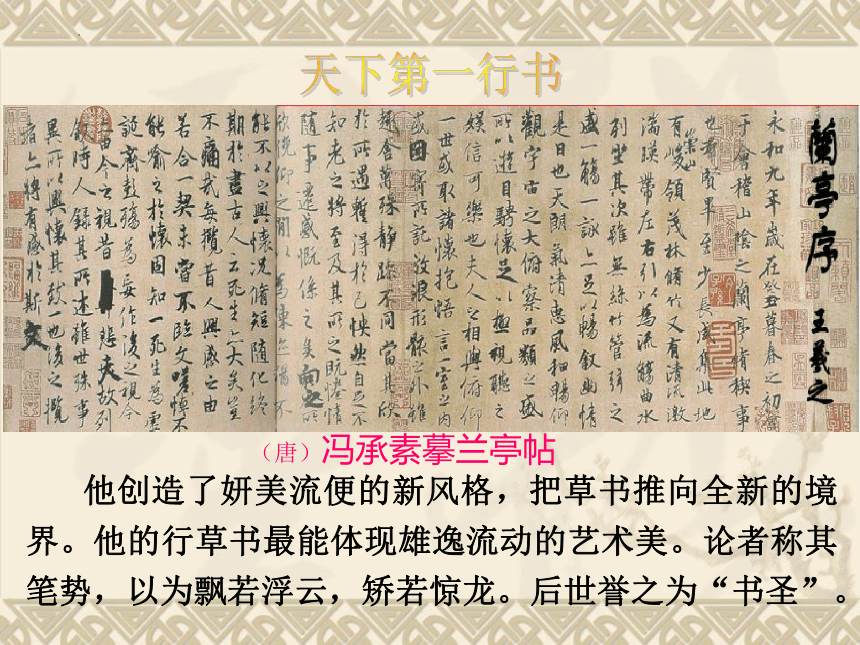 天下第一行书
蘭亭序 王羲之
永和九年歲在癸丑暮春之初會
于會稽山陰之蘭亭脩稧事
也羣賢畢至少長咸集此地
有崇山峻領茂林脩竹又有清流激
湍暎帶左右引以為流觴曲水
列坐其次雖無絲竹管弦之
盛一觴一詠亦足以暢敘幽情
是日也天朗氣清惠風和暢仰
觀宇宙之大俯察品類之盛
所以遊目騁懷足以極視聽之
娛信可樂也夫人之相與俯仰
一世或取諸懷抱悟言一室之內
或因寄所託放浪形骸之外雖
趣舍萬殊靜躁不同當其欣
於所遇暫得於己怏然自足不
知老之將至及其所之既惓情
隨事遷感慨係之矣向之所
欣俛仰之閒以為陳迹猶不
能不以之興懷況脩短隨化終
期於盡古人云死生亦大矣豈
不痛哉每攬昔人興感之由
若合一契未嘗不臨文嗟悼不
能喻之於懷固知一死生為虛
誕齊彭殤為妄作後之視今
亦由今之視昔悲夫故列
敘時人錄其所述雖世殊事
異所以興懷其致一也後之攬
者亦將有感於斯文
（唐）冯承素摹兰亭帖
他创造了妍美流便的新风格，把草书推向全新的境
界。他的行草书最能体现雄逸流动的艺术美。论者称其
笔势，以为飘若浮云，矫若惊龙。后世誉之为“书圣”。